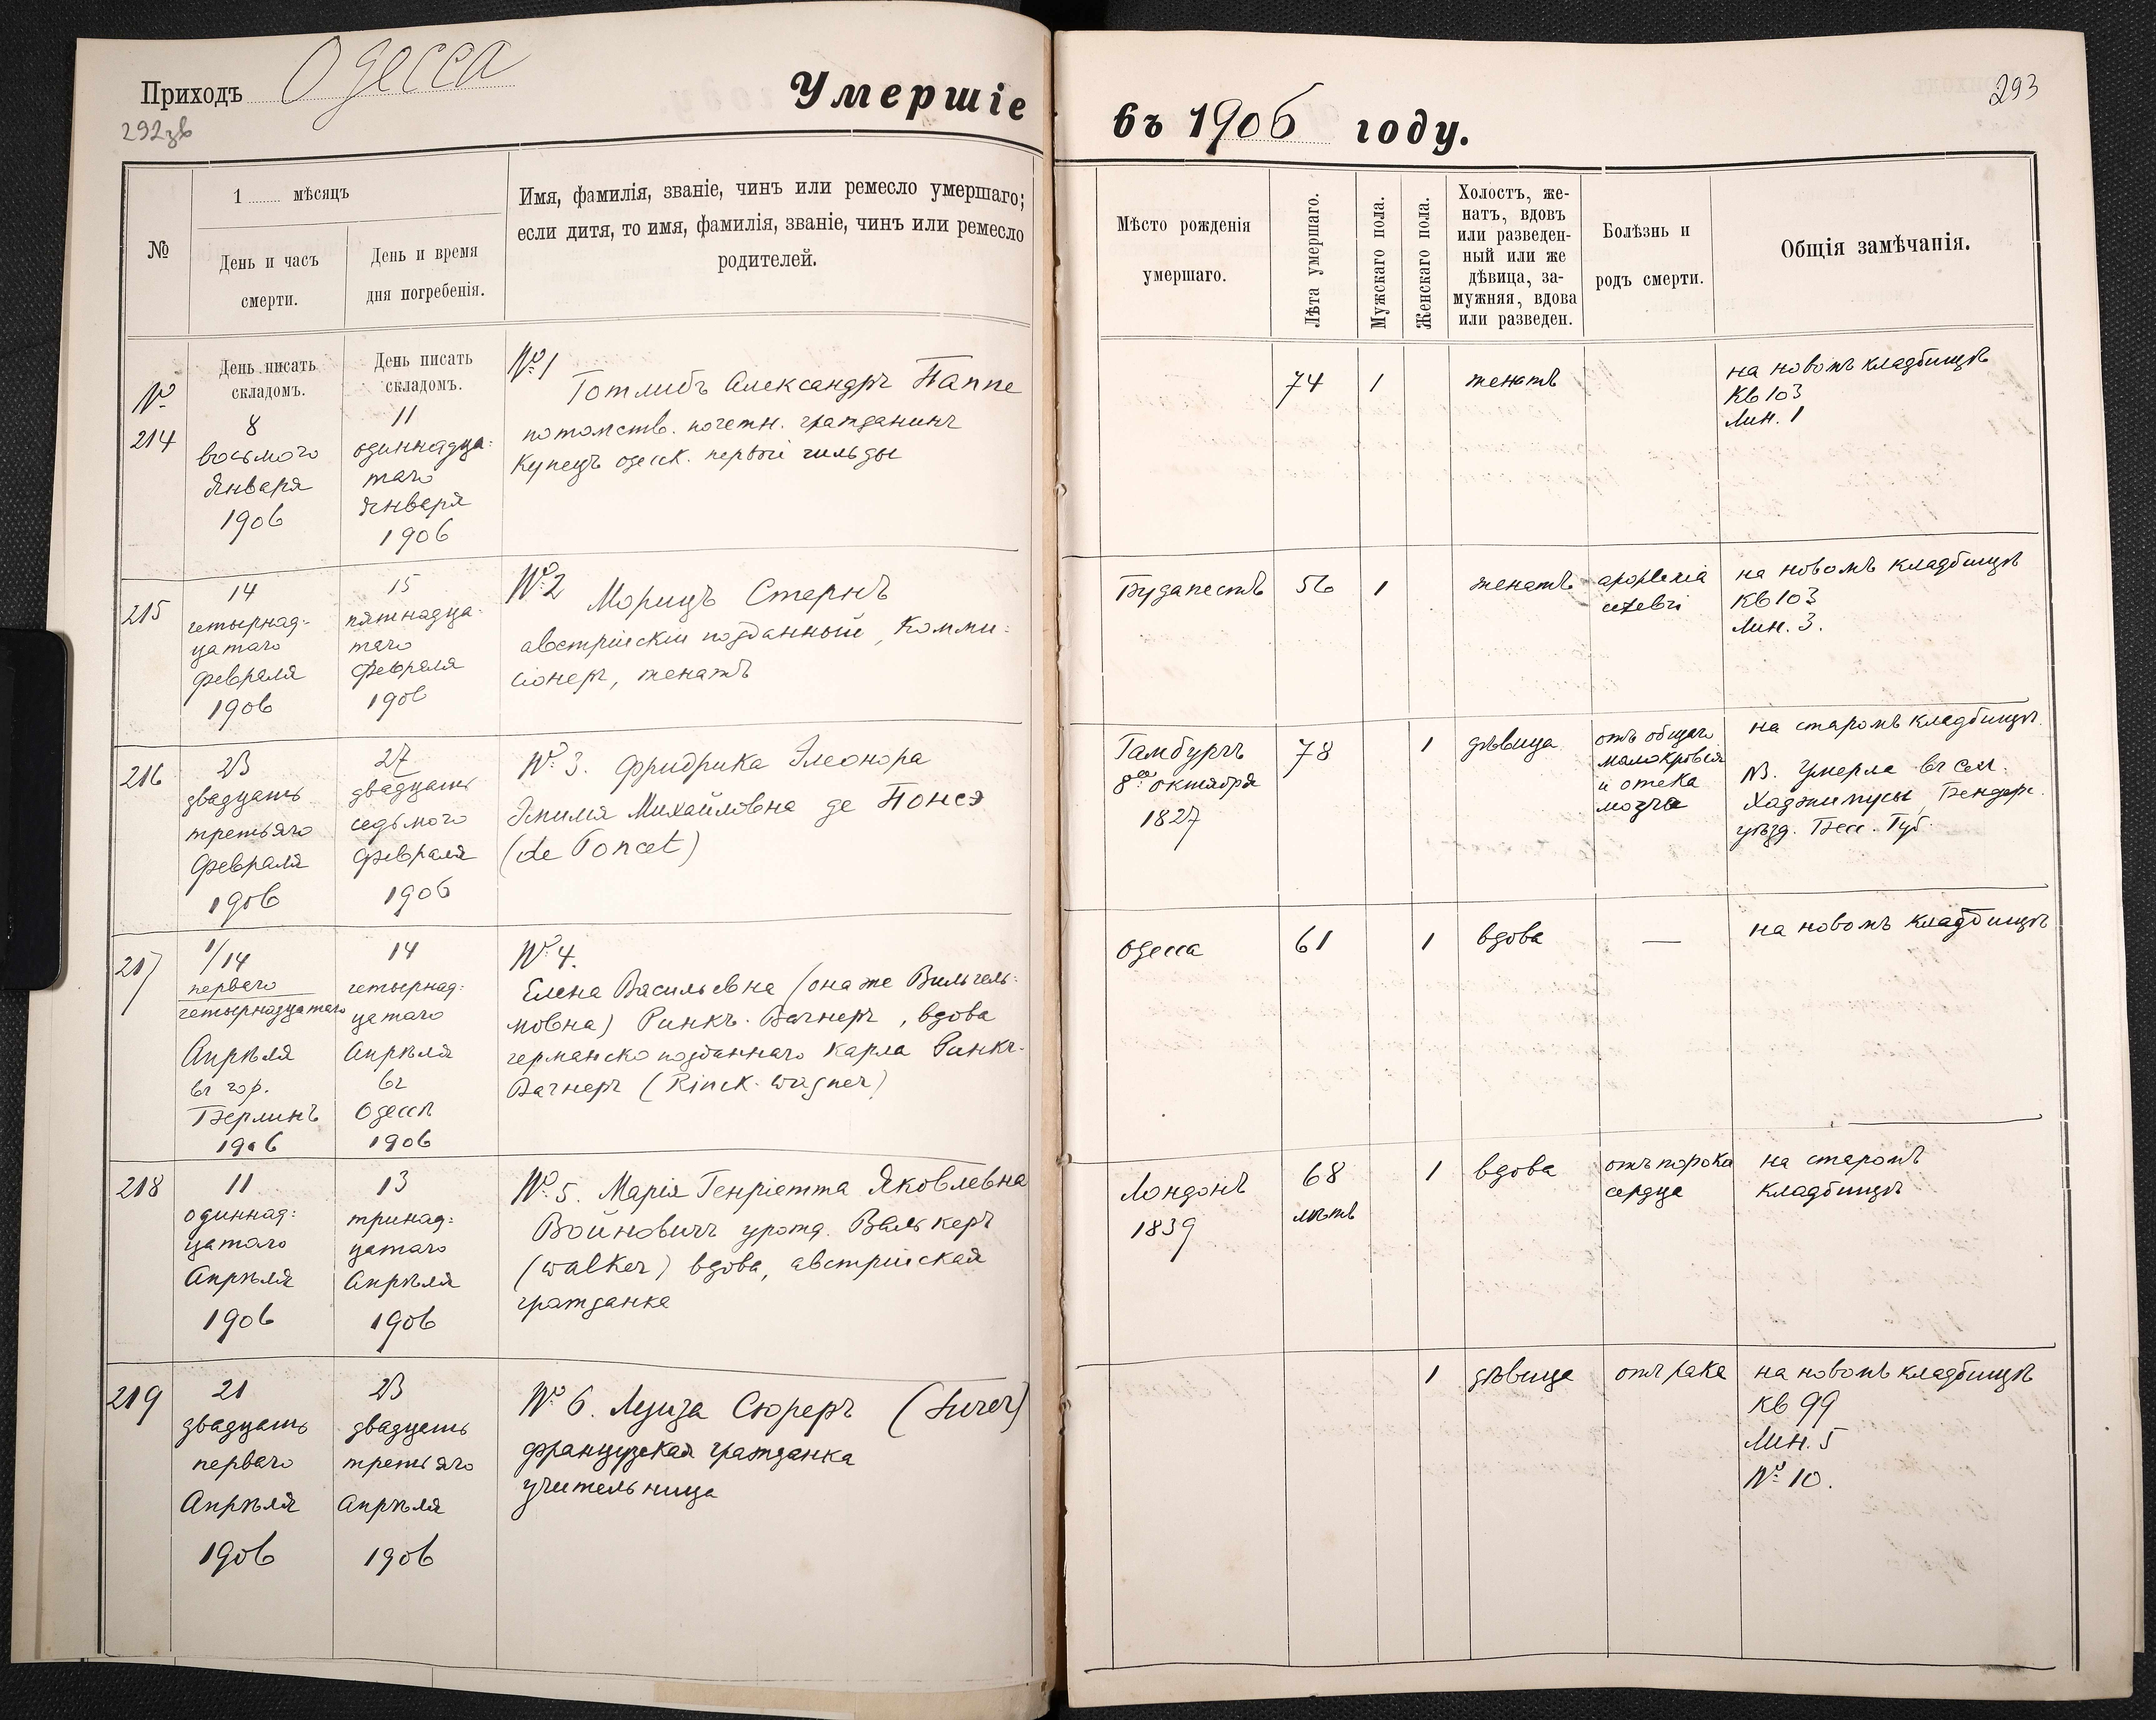 Приходъ Одесса
292зв
Умершіе
въ 1906 году.
293
№
1 ........ мѣсяцъ
День и часъ
смерти.
День и время
дня погребенія.
Имя, фамилія, званіе, чинъ или ремесло умершаго;
если дитя, то имя, фамилія, званіе, чинъ или ремесло
родителей.
Мѣсто рожденія
умершаго.
Лѣта умершаго.
Мужскаго пола.
Женскаго пола.
Холостъ, же-
натъ, вдовъ
или разведен-
ный или же
дѣвица, за-
мужняя, вдова
или разведен.
Болѣзнь и
родъ смерти.
Общія замѣчанія.
День писать
складомъ.
День писать
складомъ.
№
214
8
восьмого
Января
1906
11
одиннадца-
таго
Января
1906
№ 1
Готлибъ Александръ Паппе
потомств. почетн. гражданинъ
Купецъ одесск. первой гильды
74
1
женатъ
на новомъ кладбищѣ
Кв 103
Лин. 1
215
14
четырнад-
цатаго
Февраля
1906
15
пятнадца-
таго
Февраля
1906
№ 2
Морицъ Стернъ
австрійскій подданный, Комми-
сіонеръ, женатъ
Будапештъ
56
1
женатъ
apoplexia
на новомъ кладбищѣ
Кв 103
Лин. 3.
216
23
двадцать
третьяго
Февраля
1906
27
двадцать
седьмого
Февраля
1906
№ 3. Фридрика Элеонора
Эмилія Михайловна де Понсэ
(de Poncet)
Гамбургъ
8го октября
1827
78
1
дѣвица
отъ общаго
малокровія
и отека
мозга
на старомъ кладбищѣ
NB. Умерла въ сел.
Хаджимусы, Бендер.
уѣзд. Бесс. Губ.
217
1/14
перваго
четырнадцатаго
Апрѣля
въ гор.
Берлинъ
1906
14
четырнад-
цатаго
Апрѣля
въ
Одессѣ
1906
№ 4.
Елена Васильевна (она же Вильгель-
мовна) Ринкъ-Вагнеръ, вдова
германско подданнаго Карла Ринкъ-
Вагнеръ (Rinck-Wagner)
Одесса
61
1
вдова
—
на новомъ кладбищѣ
218
11
одиннад-
цатаго
Апрѣля
1906
13
тринад-
цатаго
Апрѣля
1906
№ 5. Марія Генріетта Яковлевна
Войновичъ урожд. Валькеръ
(Walker) вдова, австрійская
гражданка
Лондонъ
1839
68
лѣтъ
1
вдова
отъ порока
сердца
на старомъ
кладбищѣ
219
21
двадцать
перваго
Апрѣля
1906
23
двадцать
третьяго
Апрѣля
1906
№ 6. Луиза Сюреръ (Surer)
французская гражданка
учительница
1
дѣвица
отъ рака
на новомъ кладбищѣ
Кв 99
Лин. 5
№ 10.